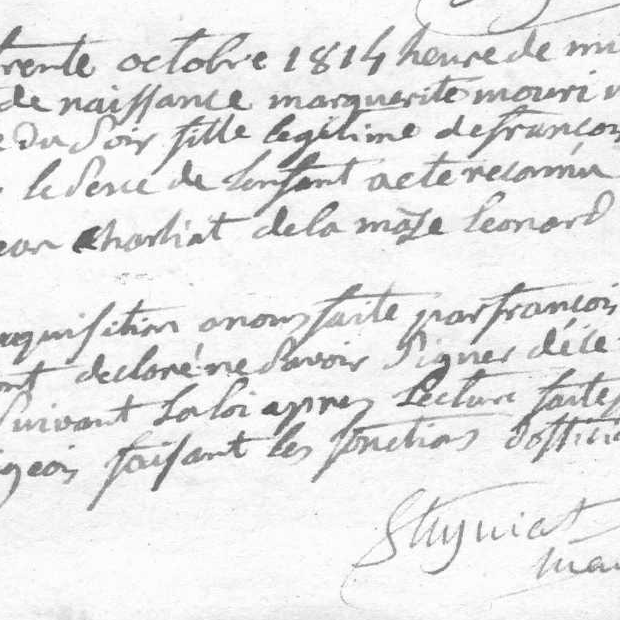 trente octobre 1814 heure de mi
de naissance marguerite mouri
du Soir fille legitime de françois
le Sexe de Lenfant acte reconnu
charliat de la maze Leonard
requisition a nous faite par françois
ont declaré ne Savoir Signer de ce
Suivant La loi apres Lecture faite
geois faisant les fonctions doffici